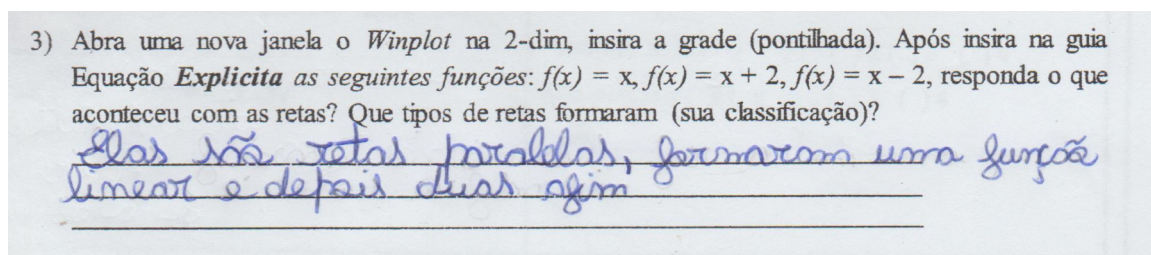 3) Abra uma nova janela o Winplot na 2-dim, insira a grade (pontilhada). Após insira na guia
Equação Explicita as seguintes funções: f(x) = x, f(x) = x + 2, f(x) = x – 2, responda o que
aconteceu com as retas? Que tipos de retas formaram (sua classificação)?
Elas são retas paralelas, formaram uma função
linear e depois duas afim